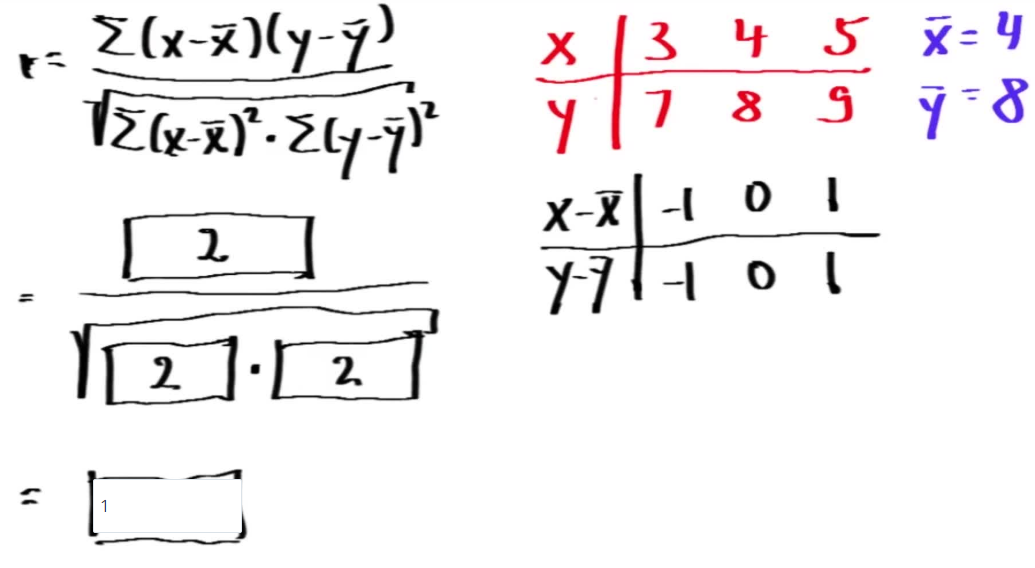 r = Σ(x-x̄)(y-ȳ) / √(Σ(x-x̄)² · Σ(y-ȳ)²)
= 2 / √(2 · 2)
= 1
x | 3 4 5
y | 7 8 9
x̄ = 4
ȳ = 8
x-x̄ | -1 0 1
y-ȳ | -1 0 1